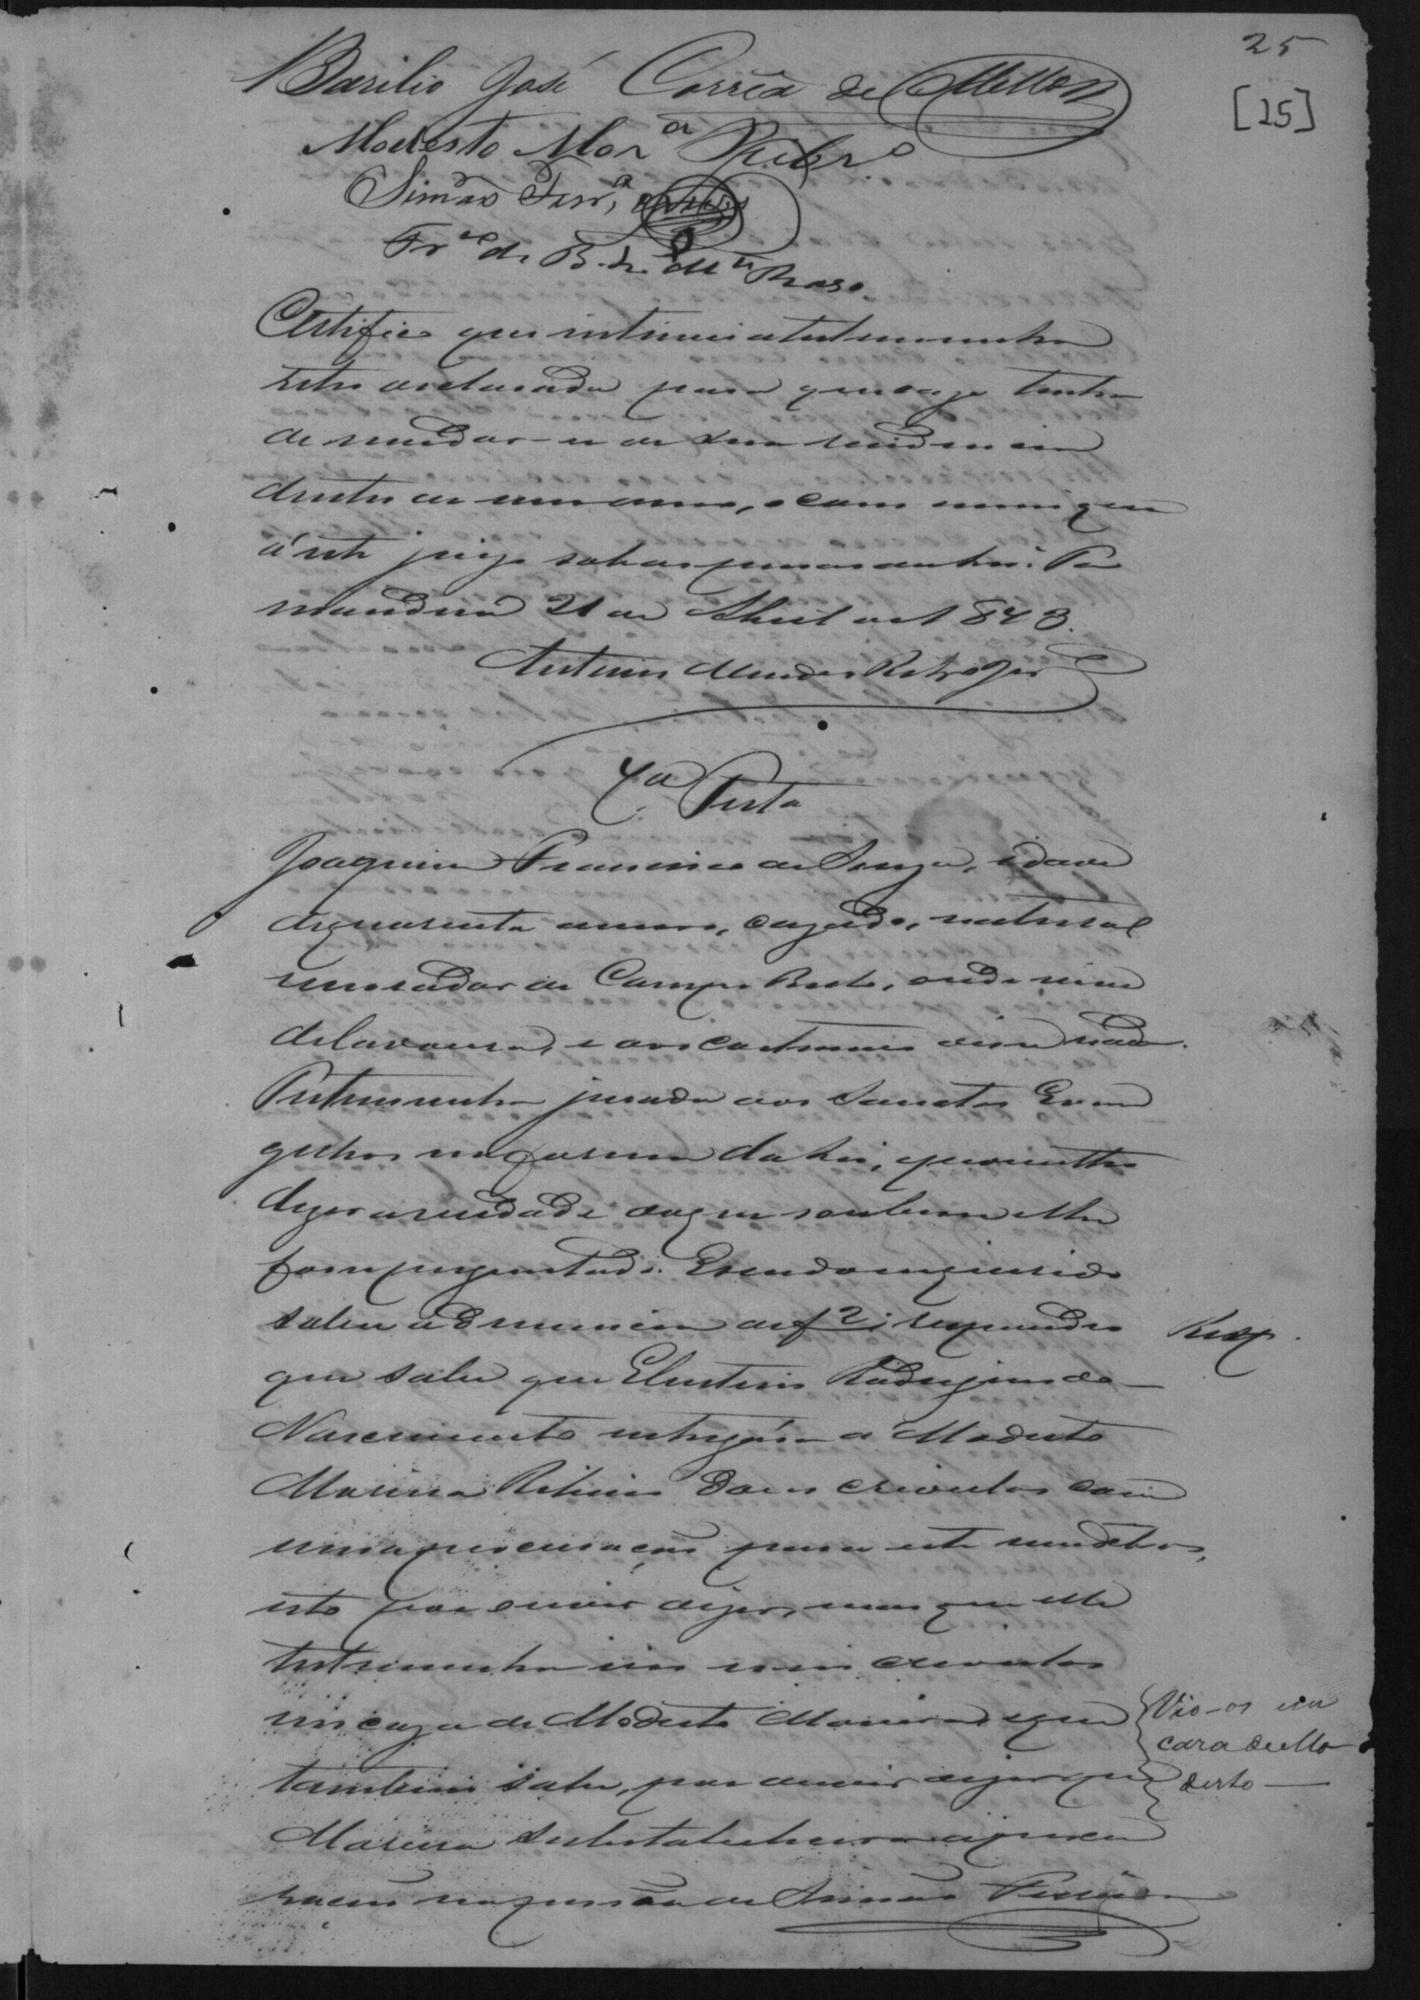 25
[25]
Basilio José Corrêa de Mello
Modesto Mor.ª Ribr.º
Simão Ferr.ª
Fr.co de B. L. M.el Raso
Certifico que intimei a testemunha
retro declarada para que caso tenha
de mudar-se de sua residencia
dentro de um anno, o communique
á este juizo sob as penas da Lei. Pa
mandua 21 de Abril de 1843.
Antonio Mendes
4.ª Testa
Joaquim Francisco de Souza, idade
de quarenta annos, cazado, natural
morador de Campo Bello, onde vive
de lavoura, e aos costumes disse nada.
Testemunha jurada aos Sanctos Evan
gelhos na forma da Lei, e prometteo
dizer a verdade do que soubesse e lhe
fosse perguntado. E sendo inquirido
sobre a denuncia de f 2; respondeo
Resp.
que sabe que Eleuterio Rodrigues do
Nascimento entregára a Modesto
Moreira Ribeiro dous crioulos com
uma procuração para este vendel-os,
isto por ouvir dizer, mas que elle
testemunha vio esses crioulos
em caza de Modesto Moreira, e que
Vio-os em
caza de Mo
desto
tambem sabe, por ouvir dizer que
Moreira substabelecera a procu
ração na pessôa de Simão Ferreira